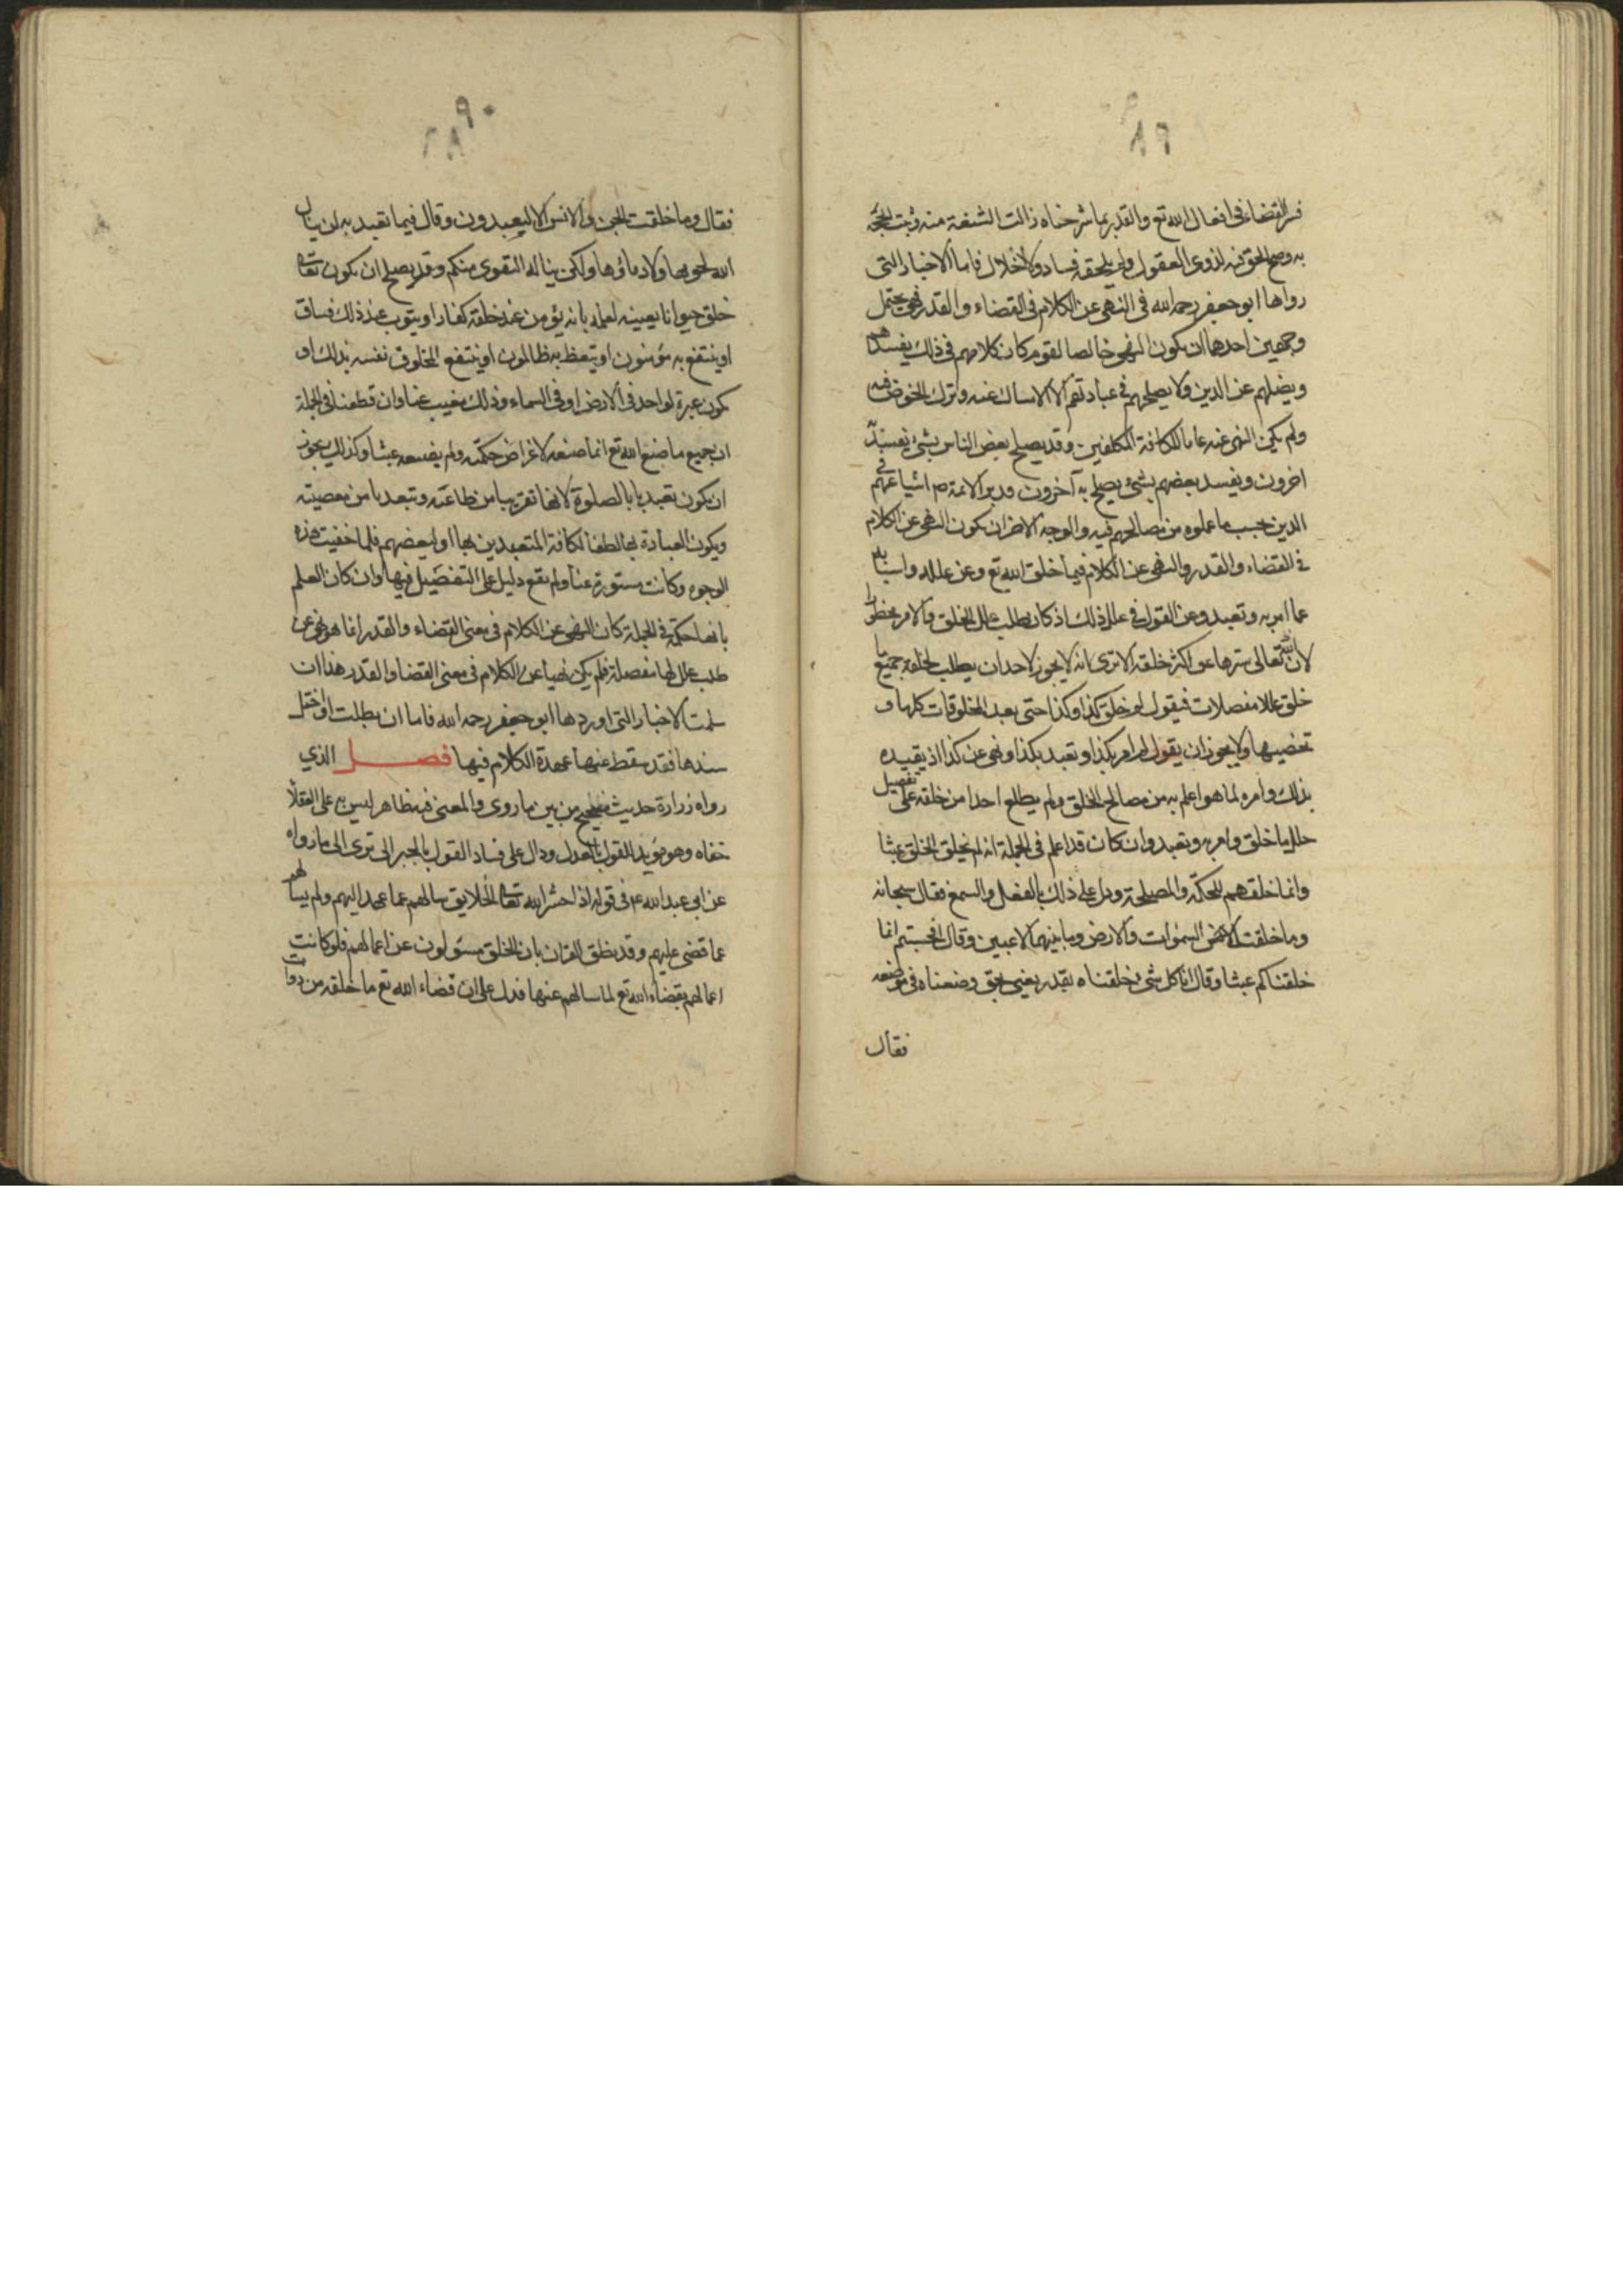 فسر القضاء فى افعال الله تع والقدر بما شرحناه زالت الشنعة منه وثبت الحجة
به وضح الحق فيه لذوى العقول ولم يلحقه فساد ولا اخلال فاما الاخبار التى
رواها ابو جعفر رحمه الله فى النهى عن الكلام فى القضاء والقدر فهى تحتمل
وجهين احدهما ان يكون النهى خاصا لقوم كان كلامهم فى ذلك يفسدهم
ويضلهم عن الدين ولا يصلحهم فى عبادتهم الا الامساك عنه وترك الخوض فيه
ولم يكن النهى عنه عاما لكافة المكلفين وقد يصلح بعض الناس بشئ يفسد به
اخرون ويفسد بعضهم بشئ يصلح به آخرون فدبر الائمة ع اشياعهم فى
الدين بحسب ما علموه من مصالحهم فيه والوجه الاخر ان يكون النهى عن الكلام
فى القضاء والقدر والنهى عن الكلام فيما خلق الله تع وعن علله واسبابه
عما امر به وتعبد وعن القول فى علل ذلك اذ كان طلب علل الخلق والامر محظورا
لان الله تعالى سترها عن اكثر خلقه الا ترى انه لا يجوز لاحد ان يطلب لخلقه جميع ما
خلق عللا مفصلات فيقول لم خلق كذا وكذا حتى يعد المخلوقات كلها و
تحصيها ولا يجوز ان يقول لم امر بكذا وتعبد بكذا ونهى عن كذا اذ تعبده
بذلك وامره لما هو اعلم به من مصالح الخلق ولم يطلع احدا من خلقه على تفصيل
علل ما خلق وامر به وتعبد وان كان قد اعلم فى الجملة انه لم يخلق الخلق عبثا
وانما خلقهم للحكمة والمصلحة ودل على ذلك بالعقل والسمع فقال سبحانه
وما خلقت السموات والارض وما بينهما لاعبين وقال افحسبتم انما
خلقناكم عبثا وقال انا كل شئ خلقناه بقدر يعنى بحق وضعناه فى موضعه
فقال
فقال وما خلقت الجن والانس الا ليعبدون وقال فيما تعبد به لن ينال
الله لحومها ولا دماؤها ولكن يناله التقوى منكم وقد يصلح ان يكون تعالى
خلق حيوانا بعينه لعلمه بانه يؤمن عند خلقه كفار او يتوب عند ذلك فساق
او ينتفع به مؤمنون او يتعظ به ظالمون او ينتفع المخلوق نفسه بذلك او
يكون عبرة لواحد فى الارض او فى السماء وذلك مغيب عنا وان قطعنا فى الجملة
ان جميع ما صنع الله تع انما صنعه لاغراض حكمته ولم يصنعه عبثا وكذلك يجوز
ان يكون تعبدنا بالصلوة لانها تقربنا من طاعته وتبعدنا من معصيته
ويكون العبادة بها لطفا لكافة المتعبدين بها او لبعضهم فلما خفيت هذه
الوجوه وكانت مستورة عنا ولم يقع دليل على التفصيل فيها وان كان العلم
بانها حكمة فى الجملة كان النهى عن الكلام فى معنى القضاء والقدر انما هو نهى عن
طلب علل لها مفصلة فلم يكن نهيا عن الكلام فى معنى القضا والقدر هذا ان
سلمت الاخبار التى اوردها ابو جعفر رحمه الله فاما ان بطلت او اختل
سندها فقد سقط عنها عهدة الكلام فيها فصل الذي
رواه زرارة حديث صحيح من بين ما روى والمعنى فيه ظاهر ليس به على العقلا
خفاء وهو مؤيد للقول بالعدل ودال على فساد القول بالجبر الى ترى الى ما رواه
عن ابى عبد الله ع فى قوله اذا حشر الله تعالى الخلايق سالهم عما عهد اليهم ولم يسألهم
عما قضى عليهم وقد نطق القران بان الخلق مسؤلون عن اعمالهم فلو كانت
اعمالهم بقضاء الله تع لما سالهم عنها فدل على ان قضاء الله تع ما خلقه من ذوات